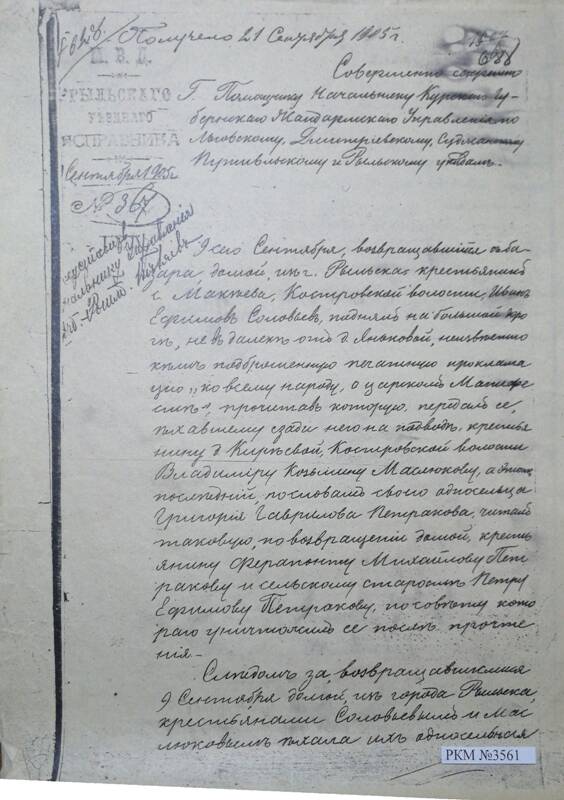 Получено 21 Сентября 1905 г.
М. В. Д.
РЫЛЬСКАГО
УѢЗДНАГО
ИСПРАВНИКА
Сентября 1905 г.
№ 367
Совершенно секретно
Г. Помощнику Начальника Курскаго Гу-
бернскаго Жандармскаго Управленія по
Льговскому, Дмитріевскому, Суджанскому
Путивльскому и Рыльскому уѣздамъ.
9 сего Сентября, возвращавшійся съ ба-
зара домой, изъ г. Рыльска крестьянинъ
с. Макѣева, Костровской волости, Иванъ
Ефимовъ Соловьевъ, поднялъ на большой доро
гѣ, не въ далекѣ отъ д. Яньковой, неизвѣстно
кѣмъ подброшенную печатную проклама
цію „ко всему народу, о царскомъ Манифе
стѣ", прочитавъ которую, передалъ ее,
ѣхавшему сзади него на подводѣ, крестья
нину д. Кирѣевой, Костровской волости
Владиміру Козьмину Маслюкову, а этотъ
послѣдній, по словамъ своего односельца
Григорія Гаврилова Петракова, читалъ
таковую, по возвращеніи домой, кресть
янину Ферапонту Михайлову Пет
ракову и сельскому старостѣ Петру
Ефимову Петракову, по совѣту кото
раго уничтожилъ ее послѣ прочте
нія. –
Слѣдомъ за, возвращавшимися
9 Сентября домой, изъ города Рыльска,
крестьянами Соловьевымъ и Мас
люковымъ ѣхала ихъ односельчия
РКМ №3561